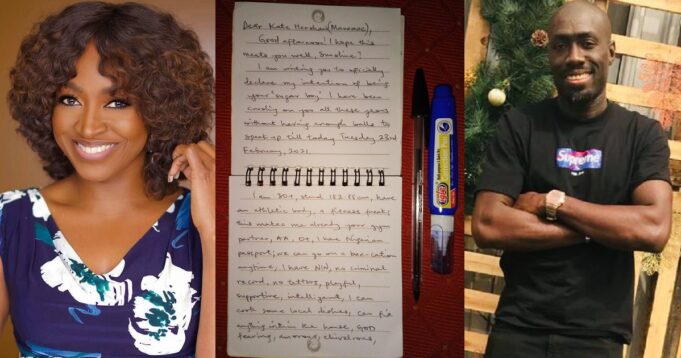 Dear Kate Henshaw (Manaaac),
Good afternoon! I hope this
meets you well, Sunshine!
I am writing you to officially
declare my intention of being
your 'sugar boy'. I have been
crushing on you all these years
without having enough balls to
speak up till today Tuesday 23rd
February, 2021.
I am 30+, stand 182.88cm, have
an athletic body, a fitness freak;
this makes me already your gym
partner, AA, O+, I have Nigerian
passport; we can go on a baecation
anytime, I have NIN, no criminal
record, no tattoos, playful,
supportive, intelligent, I can
cook some local dishes, can fix
anything within the house, GOD
fearing, amorous, chivalrous,
Supreme